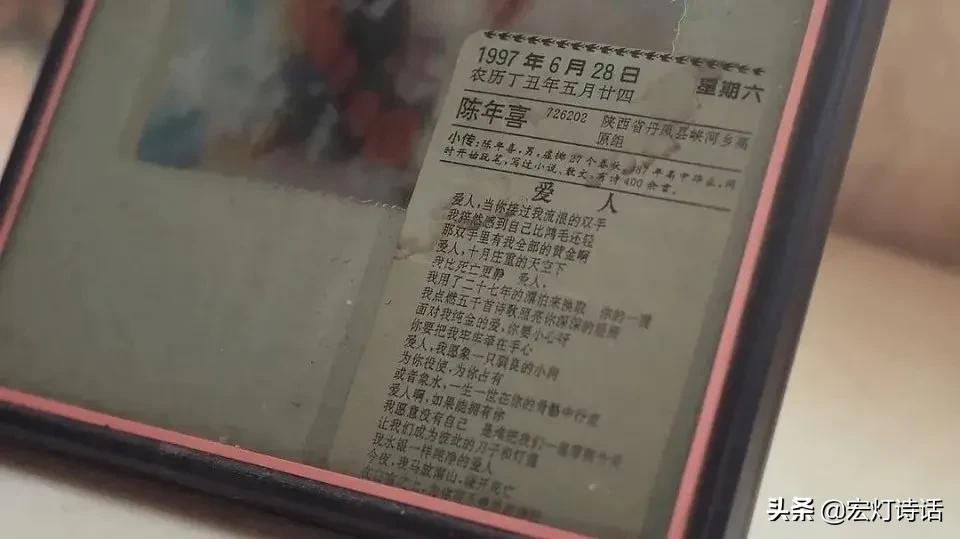 1997年6月28日 星期六
农历丁丑年五月廿四
陈年喜 726202 陕西省丹凤县峡河乡高
原组
小传:陈年喜,男,虚掷27个春秋,987年高中毕业,同
时开始玩笔,写过小说、散文,有诗400余首。
爱人
爱人,当你接过我流浪的双手
我猝然感到自己比鸿毛还轻
那双手里有我全部的黄金啊
爱人,十月庄重的天空下
我比死亡更静 爱人,
我用了二十七年的漂泊来换取 你的一
我点燃五千首诗歌照亮你深深的
面对我纯金的爱,你要小心呀
你要把我牢牢牵在手心
爱人,我愿象一只驯良的小狗
为你役使,为你占有
或者象水,一生一世在你的骨骼中行走
爱人啊,如果能拥有你
我愿意没有自己 是谁把我们一
让我们成为彼此的刀子和灯盏
我水银一样纯净的爱人
今夜,我马放南山,绕开死亡
头条 @宏灯诗话